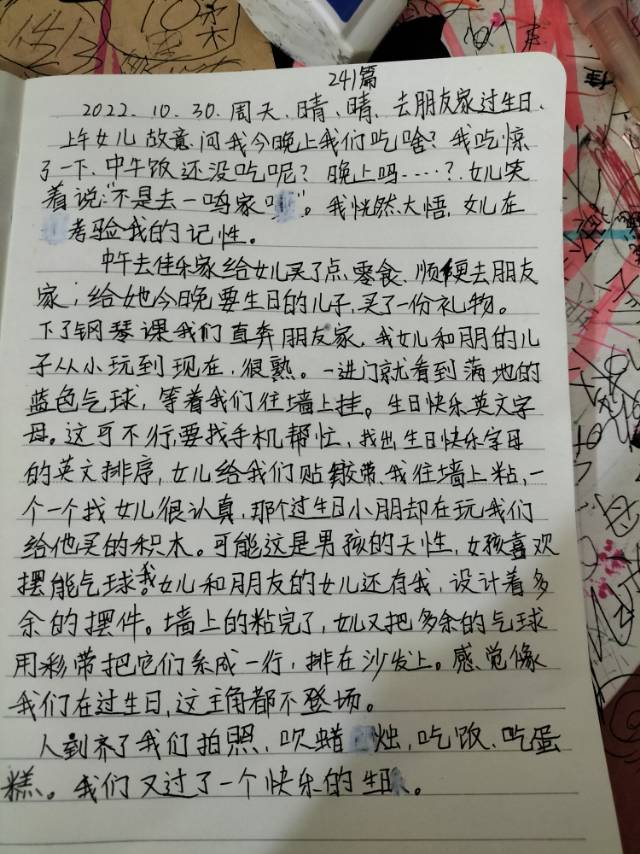 241篇
2022.10.30.周天.晴、晴.去朋友家过生日.
上午女儿故意问我今晚上我们吃啥?我吃惊
了一下.中午饭还没吃呢?晚上吗....?.女儿笑
着说:"不是去一鸣家"。我恍然大悟,女儿在
考验我的记性。
中午去佳乐家给女儿买了点零食.顺便去朋友
家,给她今晚要生日的儿子,买了一份礼物。
下了钢琴课我们直奔朋友家.我女儿和朋的儿
子从小玩到现在,很熟。一进门就看到满地的
蓝色气球,等着我们往墙上挂。生日快乐英文字
母。这可不行,要找手机帮忙,找出生日快乐字母
的英文排序,女儿给我们贴胶带、我往墙上粘,一
个一个找女儿很认真,那个过生日小朋却在玩我们
给他买的积木。可能这是男孩的天性,女孩喜欢
摆能气球。我女儿和朋友的女儿还存我,设计着多
余的摆件。墙上的粘完了,女儿又把多余的气球
用彩带把它们系成一行,排在沙发上。感觉像
我们在过生日,这主角都不登场。
人到齐了我们拍照、吹蜡烛,吃饭、吃蛋
糕。我们又过了一个快乐的生日。